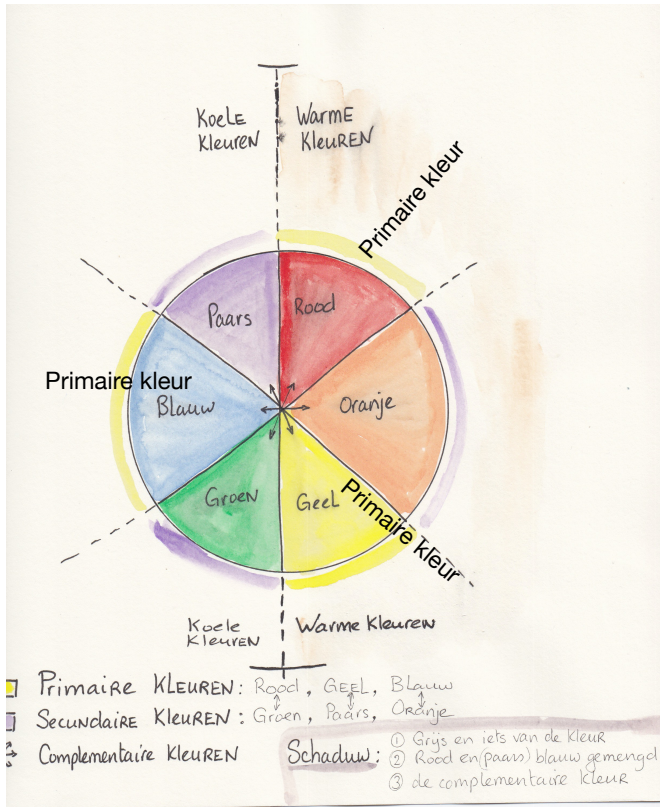 Koele Kleuren
Warme Kleuren
Primaire kleur
Paars
Rood
Primaire kleur
Blauw
Oranje
Groen
Geel
Primaire kleur
Koele Kleuren
Warme Kleuren
Primaire Kleuren: Rood, Geel, Blauw
Secundaire Kleuren: Groen, Paars, Oranje
Complementaire Kleuren
Schaduw: ① Grijs en iets van de Kleur
② Rood en (paars) blauw gemengd
③ de complementaire Kleur